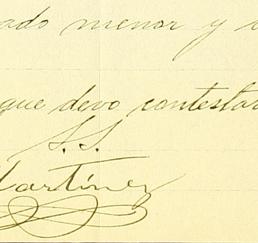 ado menor y
que devo contestar
S. S.
Martinez